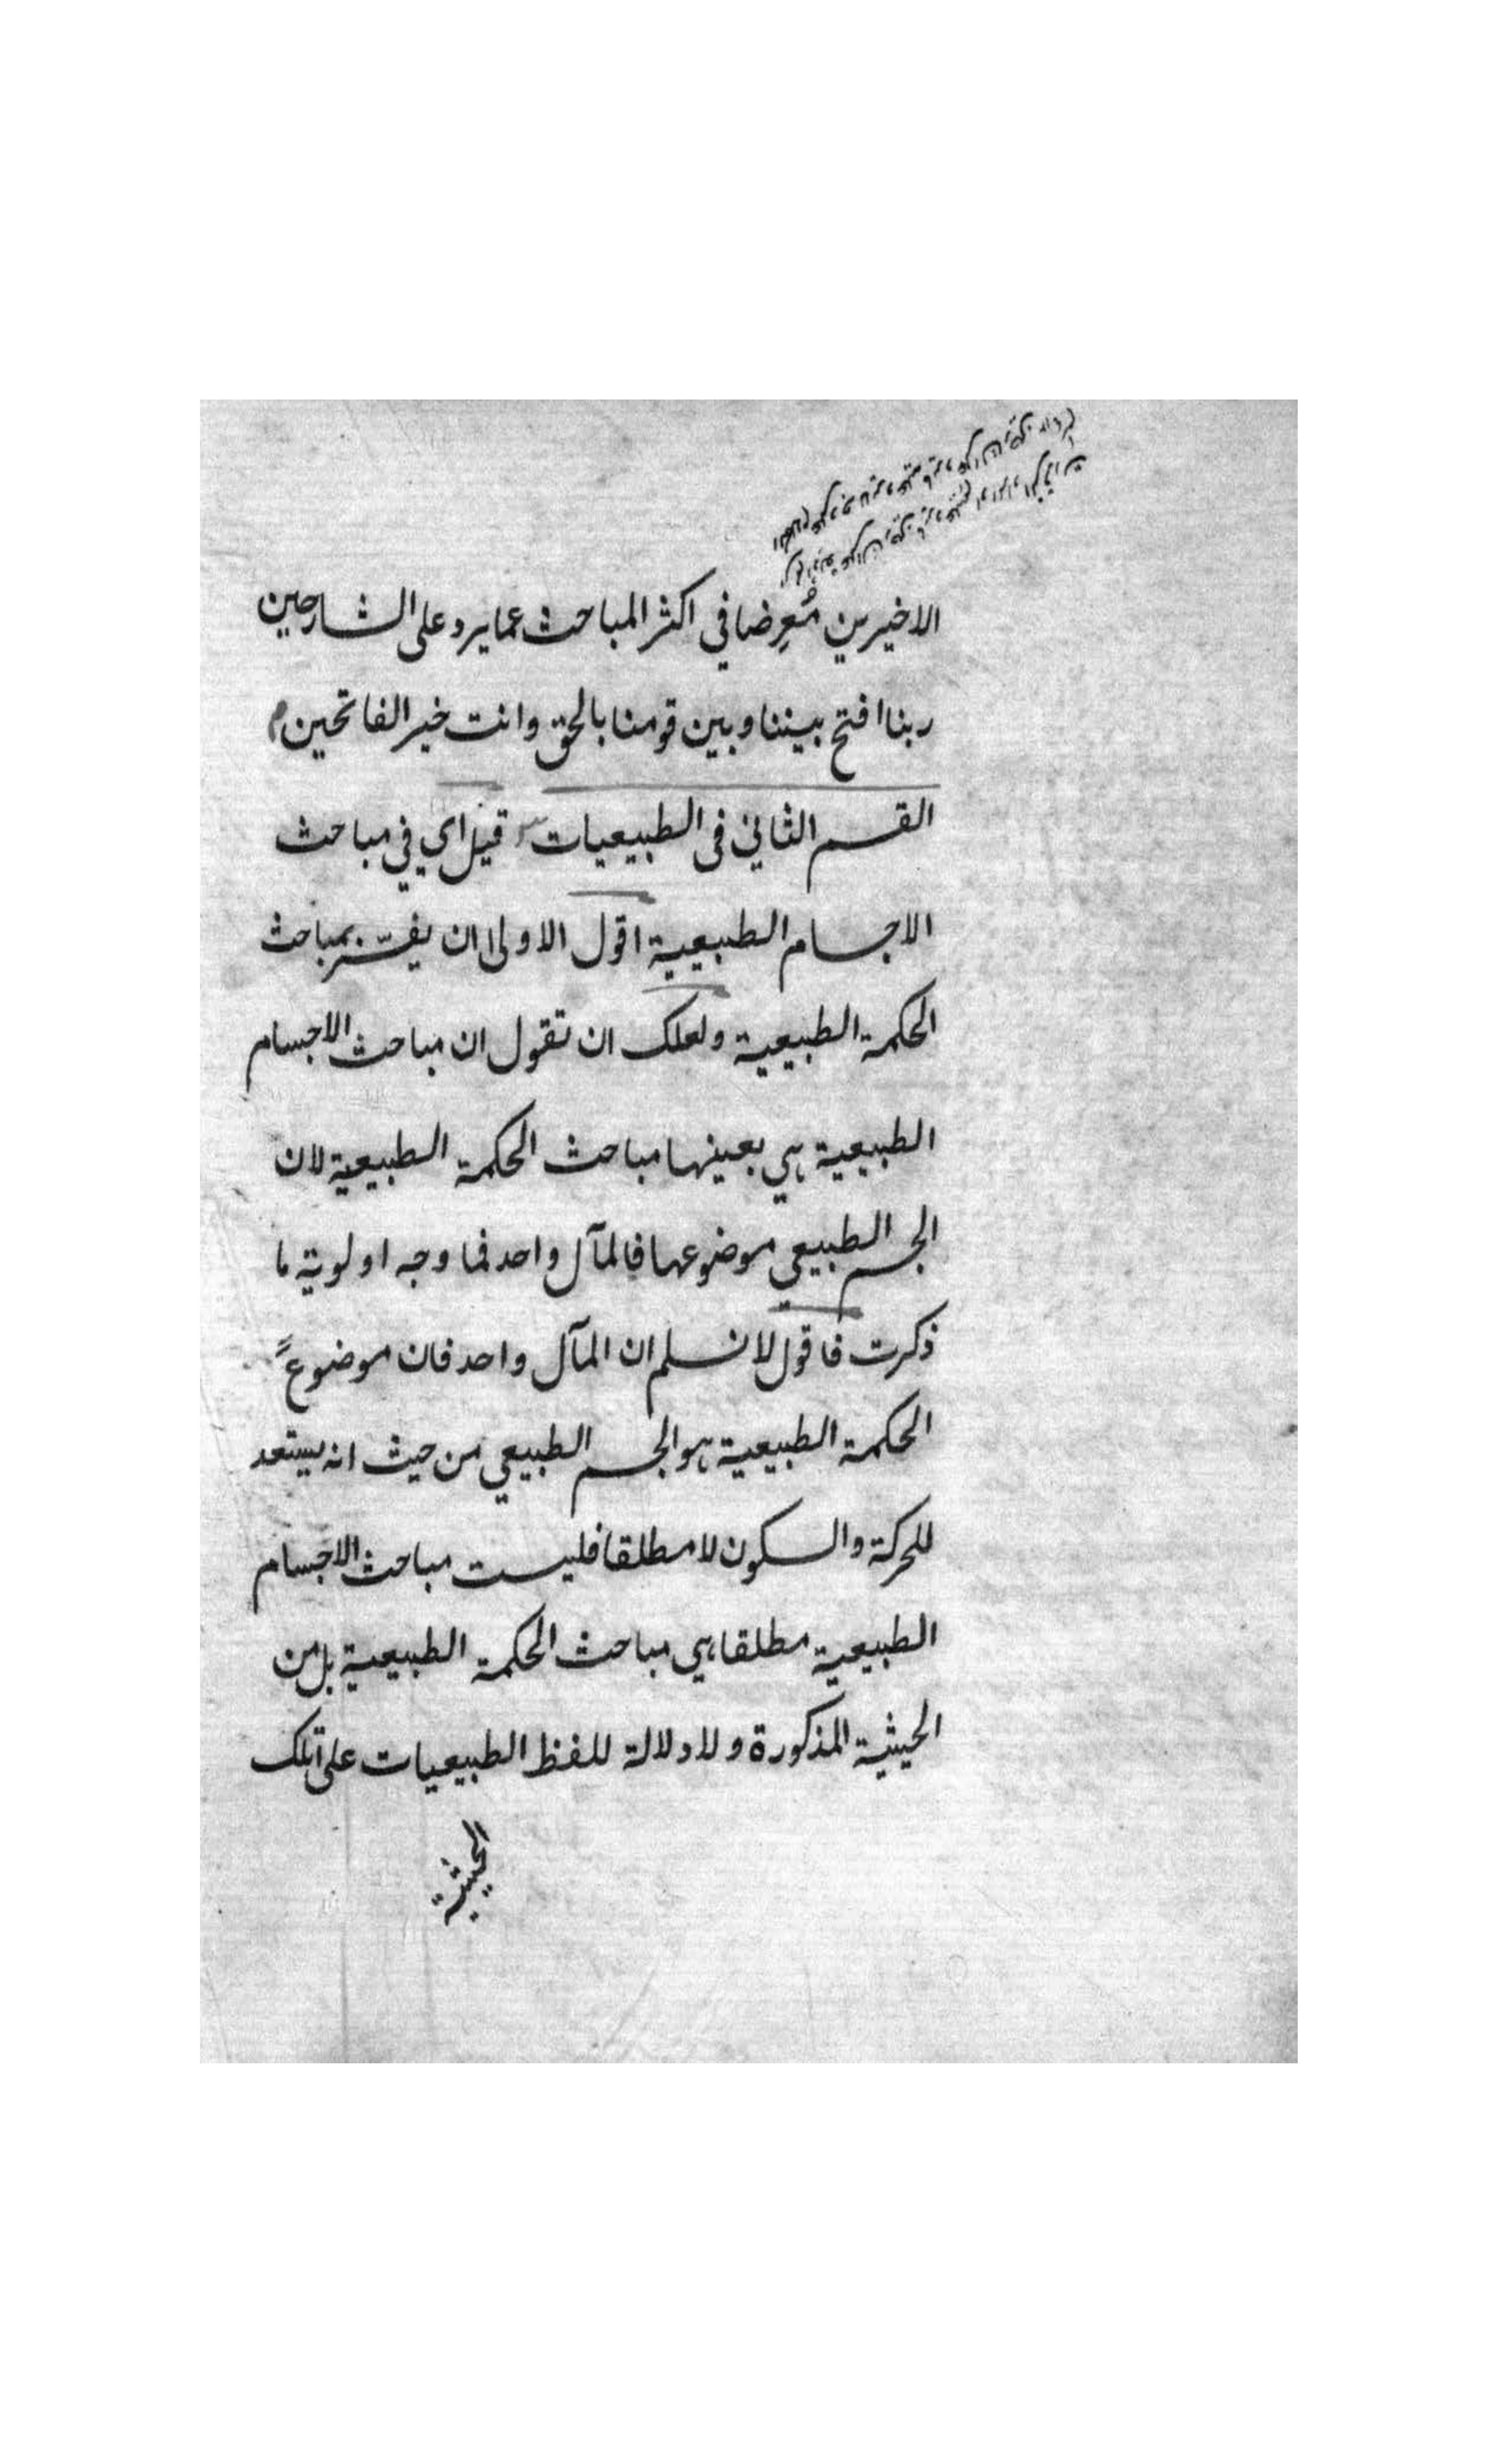 الاخيرين مُعرِضا في اكثر المباحث عما يرد على الشارحين
ربنا افتح بيننا وبين قومنا بالحق وانت خير الفاتحين م
القسم الثاني فى الطبيعيات قيل اي في مباحث
الاجسام الطبيعية اقول الاولى ان يفسّر بمباحث
الحكمة الطبيعية ولعلك ان تقول ان مباحث الاجسام
الطبيعية هي بعينها مباحث الحكمة الطبيعية لان
الجسم الطبيعي موضوعها فالمآل واحد فما وجه اولوية ما
ذكرت فاقول لا نسلم ان المآل واحد فان موضوع
الحكمة الطبيعية هو الجسم الطبيعي من حيث انه يستعد
للحركة والسكون لا مطلقا فليست مباحث الاجسام
الطبيعية مطلقا هي مباحث الحكمة الطبيعية بل من
الحيثية المذكورة ولا دلالة للفظ الطبيعيات على تلك
الحيثية